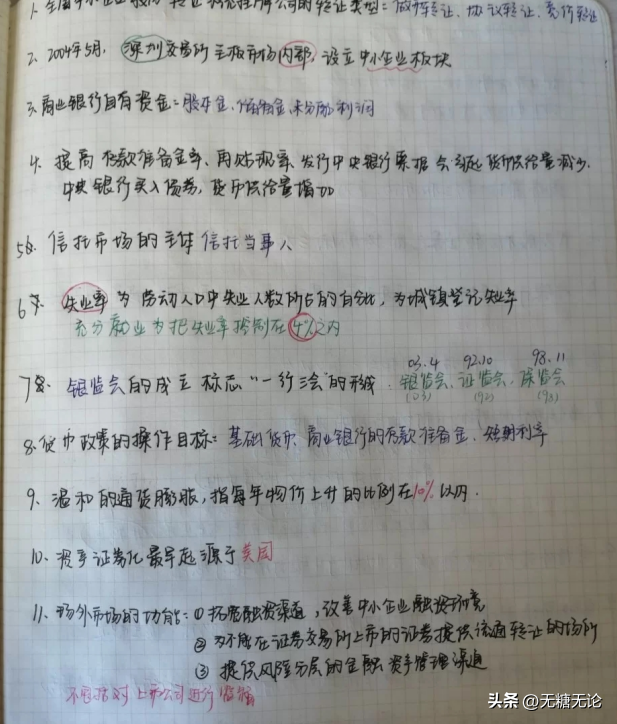 1、全国中小企业股份转让系统挂牌公司的转让类型：做市转让、协议转让、竞价转让
2、2004年5月，深圳交易所主板市场内部，设立中小企业板块
3、商业银行自有资金：股本金、储备金、未分配利润
4、提高存款准备金率、再贴现率、发行中央银行票据会引起货币供给量减少.
中央银行买入债券，货币供给量增加
5、信托市场的主体 信托当事人
6、失业率为劳动人口中失业人数所占的百分比，为城镇登记失业率
充分就业为把失业率控制在4%之内
03.4 92.10 98.11
7、银监会的成立标志"一行三会"的形成. 银监会、证监会、保监会
(03) (92) (98)
8、货币政策的操作目标：基础货币、商业银行的存款准备金、短期利率
9、温和的通货膨胀，指每年物价上升的比例在10%以内.
10、资产证券化最早起源于美国
11、场外市场的功能：①拓宽融资渠道，改善中小企业融资环境
②为不能在证券交易所上市的证券提供流通转让的场所
③提供风险分层的金融资产管理渠道
不包括对上市公司进行监督
头条 @无糖无论